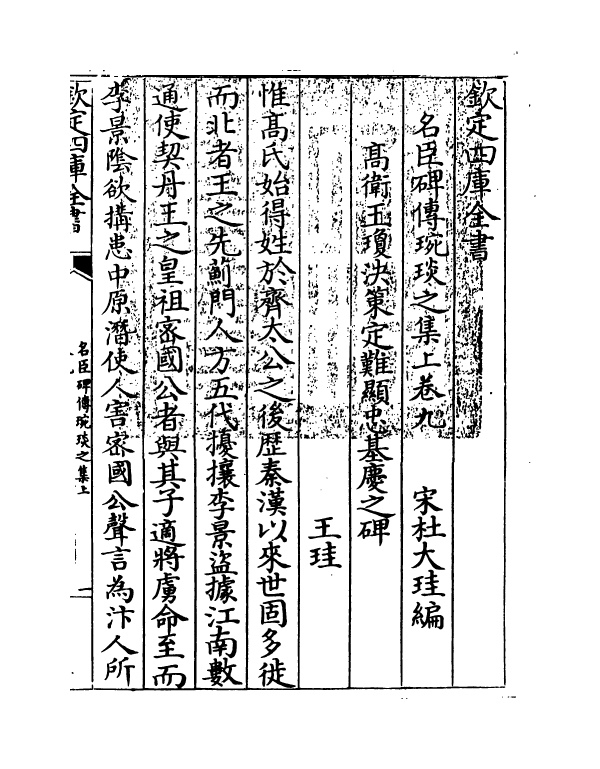 欽定四庫全書
名臣碑傳琬琰之集上卷九
宋杜大珪編
高衛王瓊決策定難顯忠基慶之碑
王珪
惟髙氏始得姓於齊太公之後歴秦漢以來世固多徙
而北者王之先薊門人方五代擾攘李景盜據江南數
通使契丹王之皇祖宻國公者與其子適將虜命至而
李景隂欲搆患中原潛使人害宻國公聲言為汴人所
欽定四庫全書
名臣碑傳琬琰之集上
一